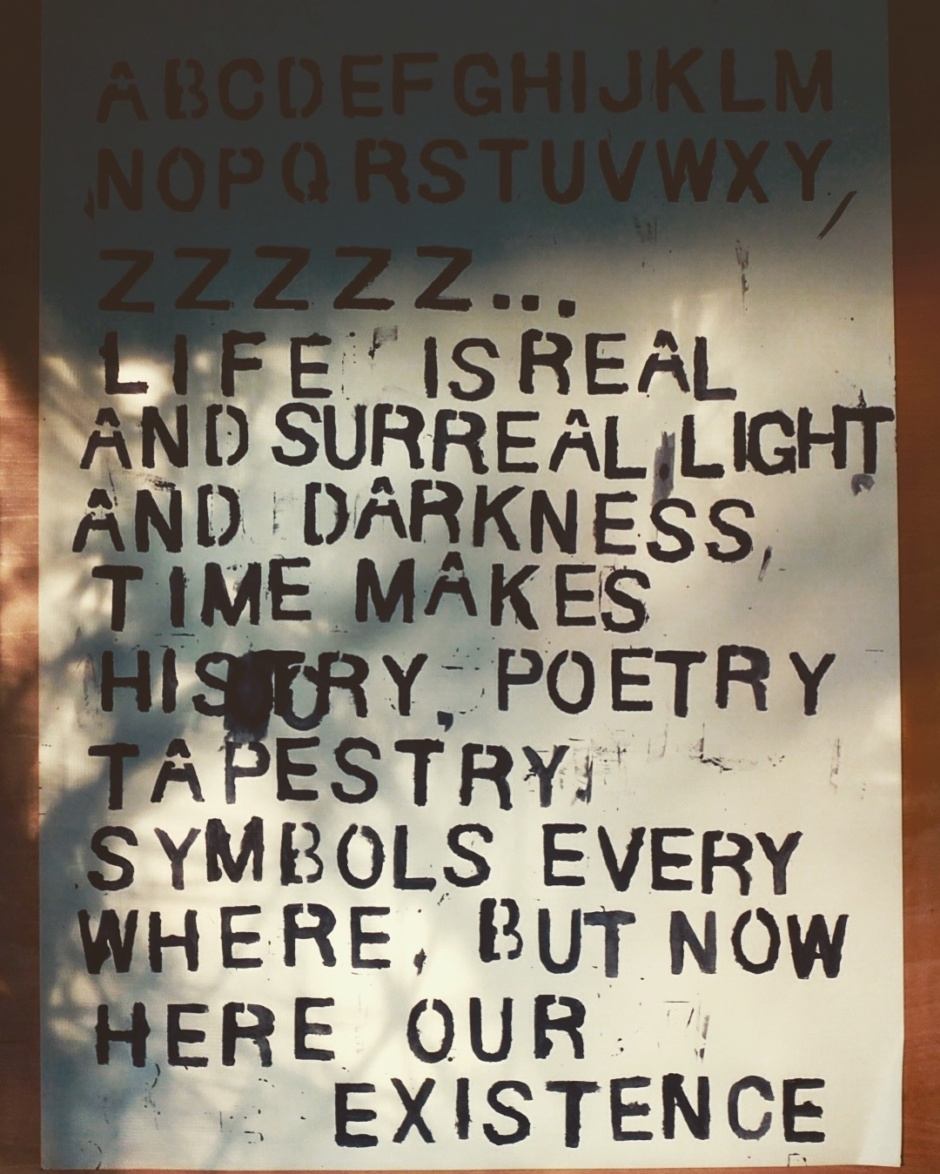 ABCDEFGHIJKLM
NOPQRSTUVWXY,
ZZZZZ...
LIFE IS REAL
AND SURREAL, LIGHT
AND DARKNESS,
TIME MAKES
HISTORY, POETRY
TAPESTRY,
SYMBOLS EVERY
WHERE, BUT NOW
HERE OUR
EXISTENCE